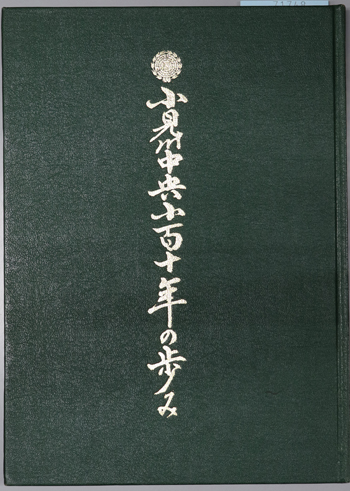 小見川中央小百十年の歩み